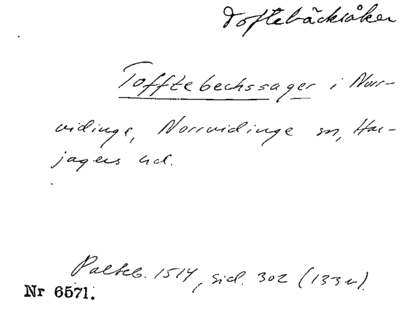 Toftebäcksåker
Tofftebechssager i Norr-
vidinge, Norrvidinge sn, Har-
jagers hd.
Palteb. 1514, sid. 302 (133 v).
Nr 6571.